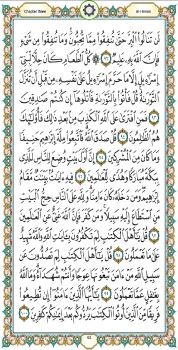 Chapter three Al-Imran
لَن تَنَالُوا۟ ٱلْبِرَّ حَتَّىٰ تُنفِقُوا۟ مِمَّا تُحِبُّونَ وَمَا تُنفِقُوا۟ مِن شَىْءٍ
فَإِنَّ ٱللَّهَ بِهِۦ عَلِيمٌ ٩٢ كُلُّ ٱلطَّعَامِ كَانَ حِلًّا لِّبَنِىٓ
إِسْرَٰٓءِيلَ إِلَّا مَا حَرَّمَ إِسْرَٰٓءِيلُ عَلَىٰ نَفْسِهِۦ مِن قَبْلِ أَن تُنَزَّلَ
ٱلتَّوْرَىٰةُ قُلْ فَأْتُوا۟ بِٱلتَّوْرَىٰةِ فَٱتْلُوهَآ إِن كُنتُمْ صَٰدِقِينَ
٩٣ فَمَنِ ٱفْتَرَىٰ عَلَى ٱللَّهِ ٱلْكَذِبَ مِنۢ بَعْدِ ذَٰلِكَ فَأُو۟لَٰٓئِكَ
هُمُ ٱلظَّٰلِمُونَ ٩٤ قُلْ صَدَقَ ٱللَّهُ فَٱتَّبِعُوا۟ مِلَّةَ إِبْرَٰهِيمَ حَنِيفًا
وَمَا كَانَ مِنَ ٱلْمُشْرِكِينَ ٩٥ إِنَّ أَوَّلَ بَيْتٍ وُضِعَ لِلنَّاسِ لَلَّذِى
بِبَكَّةَ مُبَارَكًا وَهُدًى لِّلْعَٰلَمِينَ ٩٦ فِيهِ ءَايَٰتٌۢ بَيِّنَٰتٌ مَّقَامُ
إِبْرَٰهِيمَ وَمَن دَخَلَهُۥ كَانَ ءَامِنًا وَلِلَّهِ عَلَى ٱلنَّاسِ حِجُّ ٱلْبَيْتِ
مَنِ ٱسْتَطَاعَ إِلَيْهِ سَبِيلًا وَمَن كَفَرَ فَإِنَّ ٱللَّهَ غَنِىٌّ عَنِ ٱلْعَٰلَمِينَ
٩٧ قُلْ يَٰٓأَهْلَ ٱلْكِتَٰبِ لِمَ تَكْفُرُونَ بِـَٔايَٰتِ ٱللَّهِ وَٱللَّهُ شَهِيدٌ
عَلَىٰ مَا تَعْمَلُونَ ٩٨ قُلْ يَٰٓأَهْلَ ٱلْكِتَٰبِ لِمَ تَصُدُّونَ عَن
سَبِيلِ ٱللَّهِ مَنْ ءَامَنَ تَبْغُونَهَا عِوَجًا وَأَنتُمْ شُهَدَآءُ وَمَا ٱللَّهُ
بِغَٰفِلٍ عَمَّا تَعْمَلُونَ ٩٩ يَٰٓأَيُّهَا ٱلَّذِينَ ءَامَنُوٓا۟ إِن تُطِيعُوا۟
فَرِيقًا مِّنَ ٱلَّذِينَ أُوتُوا۟ ٱلْكِتَٰبَ يَرُدُّوكُم بَعْدَ إِيمَٰنِكُمْ كَٰفِرِينَ ١٠٠
62